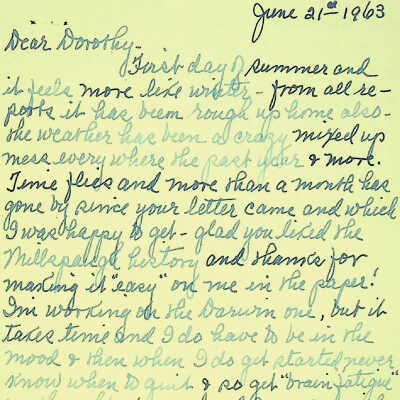 June 21st 1963
Dear Dorothy-
First day of summer and
it feels more like winter - from all re-
ports it has been rough up home also-
the weather has been a crazy mixed up
mess every where the past year & more.
Time flies and more than a month has
gone by since your letter came and which
I was happy to get - glad you liked the
Millspaugh history and thanks for
making it "easy" on me in the paper!
I'm working on the Darwin one, but it
takes time and I do have to be in the
mood & then when I do get started never
know when to quit & so get "brain fatigue"